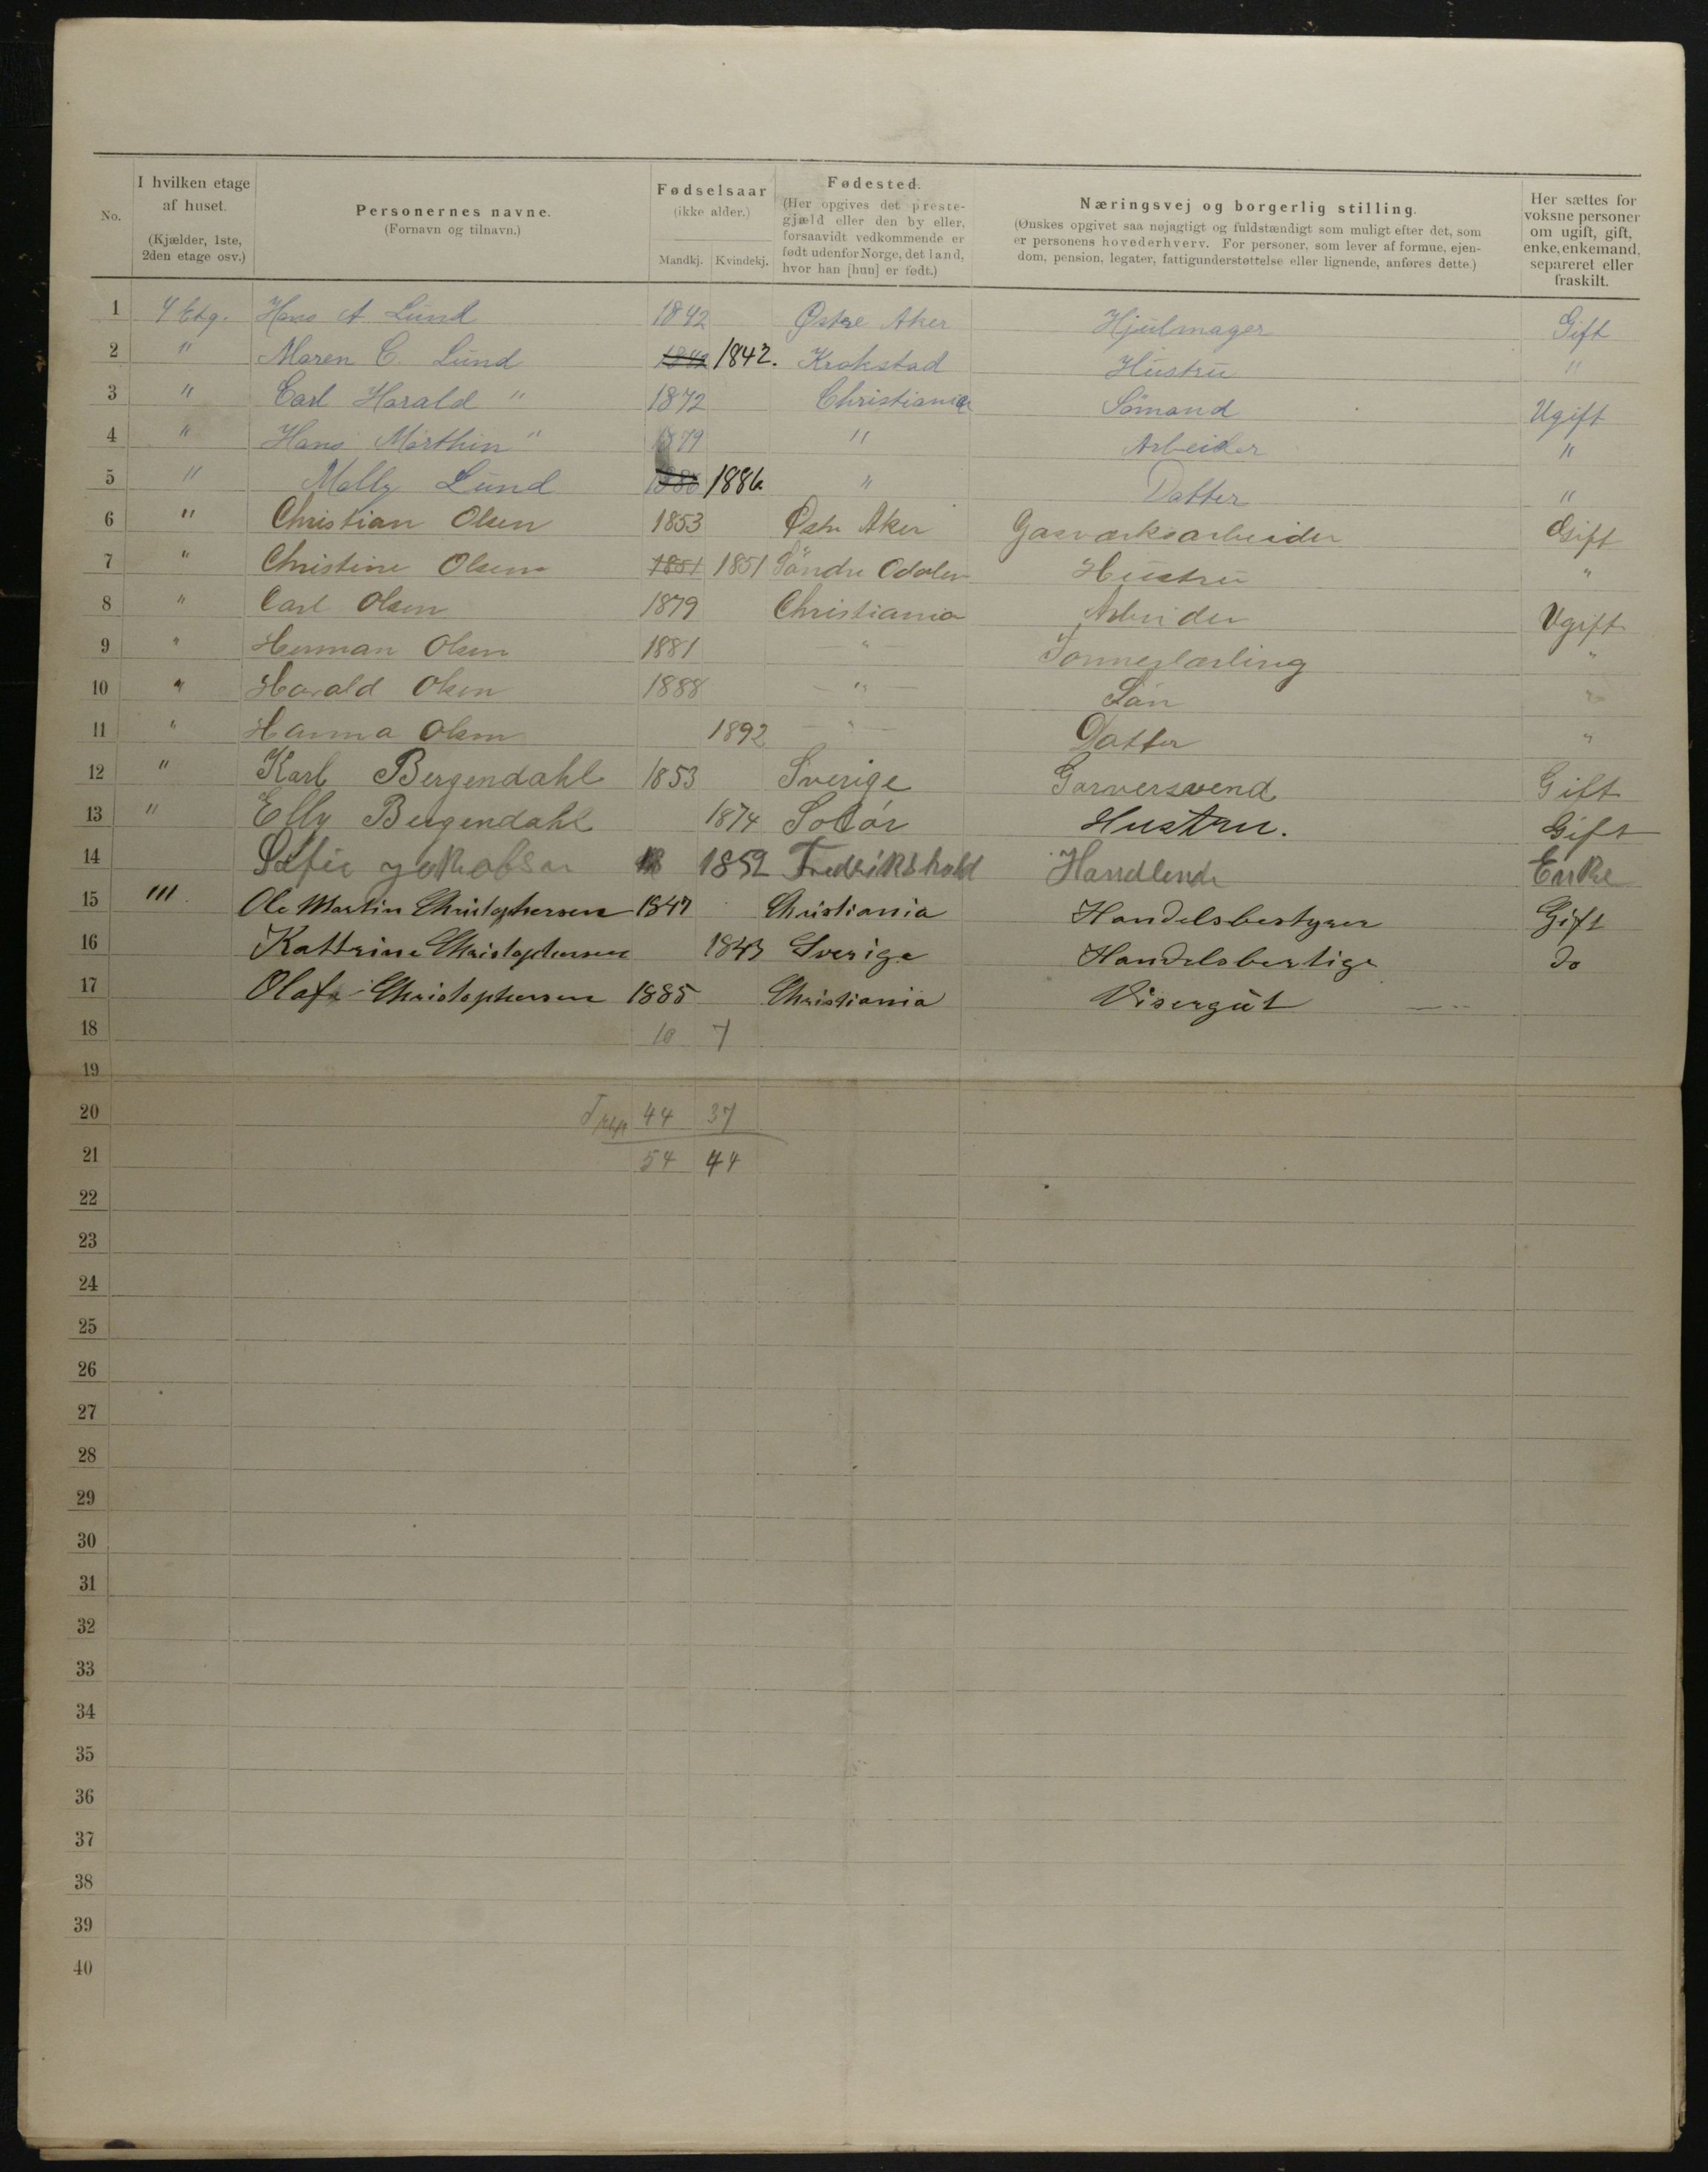 No. | I hvilken etage af huset. (Kjælder, 1ste, 2den etage osv.) | Personernes navne. (Fornavn og tilnavn.) | Fødselsaar (ikke alder.) Mandkj. Kvindekj. | Fødested. (Her opgives det prestegjæld eller den by eller, forsaavidt vedkommende er født udenfor Norge, det land, hvor han [hun] er født.) | Næringsvej og borgerlig stilling. (Ønskes opgivet saa nøjagtigt og fuldstændigt som muligt efter det, som er personens hovederhverv. For personer, som lever af formue, ejendom, pension, legater, fattigunderstøttelse eller lignende, anføres dette.) | Her sættes for voksne personer om ugift, gift, enke, enkemand, separeret eller fraskilt.
1 4 Etg. Hans A Lund 1842 Østre Aker Hjulmager Gift
2 " Maren C. Lund 1842 1842. Krokstad Hustru "
3 " Carl Harald " 1872 Christiania Sømand Ugift
4 " Hans Marthin " 1879 " Arbeider "
5 " Molly Lund 1886 1886 " Datter "
6 " Christian Olsen 1853 Østr Aker Gasværksarbeider Gift
7 " Christine Olsen 1851 1851 Söndre Odalen Hustru "
8 " Carl Olsen 1879 Christiania Arbeider Ugift
9 " Herman Olsen 1881 " "
10 " Harald Olsen 1888 — " — Sön "
11 " Hanna Olsen 1892 — " — Datter "
12 " Karl Bergendahl 1853 Sverige Garversvend Gift
13 " Elly Bergendahl 1874 Solör Hustru. Gift
14 Sofie jakobsen 18 1852 Fredrikshald Handlende Enke
15 "' Ole Martin Christophersen 1847 Christiania Handelsbestyrer Gift
16 Kattrine Christophersen 1843 Sverige do
17 Olaf Christophersen 1885 Christiania Visergut
18 10 7
19
20 44 37
21 54 44
22
23
24
25
26
27
28
29
30
31
32
33
34
35
36
37
38
39
40